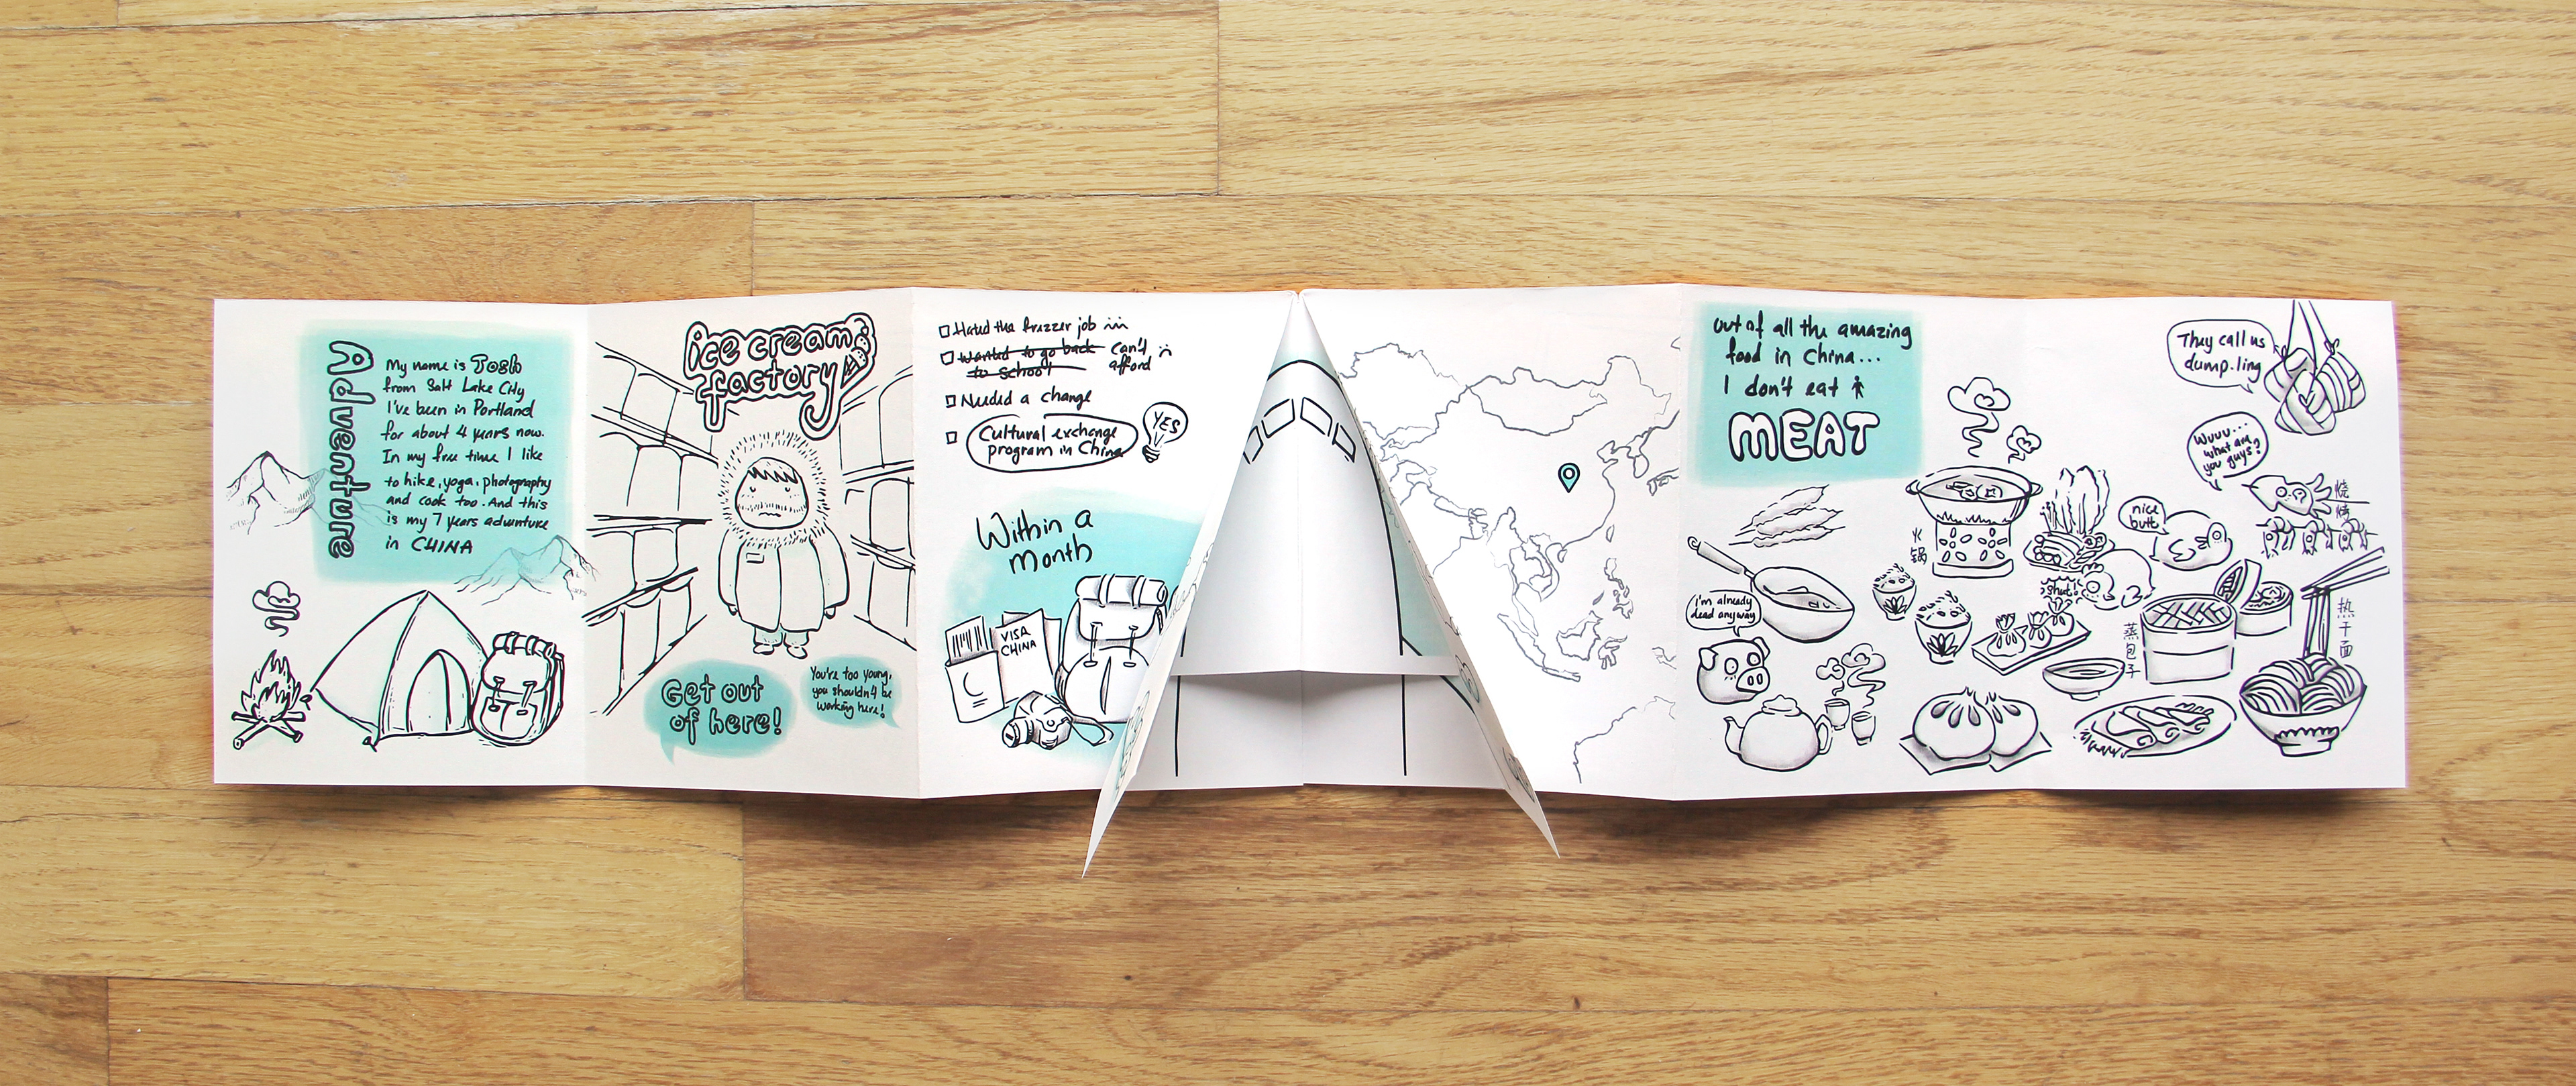 Adventure
My name is Josh
from Salt Lake City
I've been in Portland
for about 4 years now.
In my free time I like
to hike, yoga, photography
and cook too. And this
is my 7 years adventure
in CHINA
ice cream
factory
Get out
of here!
You're too young,
you shouldn't be
working here!
Hated the frezzer job
Wanted to go back can't
to school afford
Needed a change
Cultural exchange
program in China
YES
Within a
month
VISA
CHINA
out of all the amazing
food in China...
I don't eat
MEAT
They call us
dump.ling
Wuuu...
what are
you guys?
烧
烤
nice
butt
火
锅
shut!
I'm already
dead anyway
蒸
包
子
热
干
面